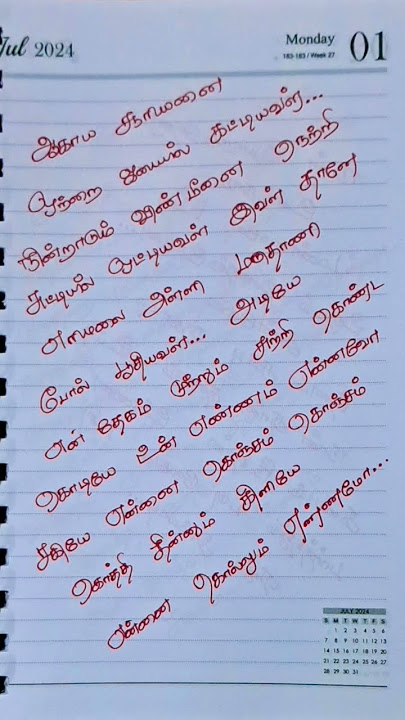 Jul 2024
Monday 01
183-183 / Week 27
ஆகாய சூரியனை
ஒற்றை ஜடையில் கட்டியவள்...
நின்றாடும் விண்மீனை நெற்றி
சுட்டியில் ஒட்டியவள் இவள் தானே
எரிமலை அள்ளி மருதாணி
போல் பூசியவள்... அடியே
என் தேகம் முற்றும் சுற்றி கொண்ட
கொடியே உன் எண்ணம் என்னவோ
சகியே என்னை கொஞ்சம் கொஞ்சம்
கொத்தி தின்னும் கிளியே
என்னை கொல்லும் எண்ணமோ...
JULY 2024
S M T W T F S
1 2 3 4 5 6
7 8 9 10 11 12 13
14 15 16 17 18 19 20
21 22 23 24 25 26 27
28 29 30 31